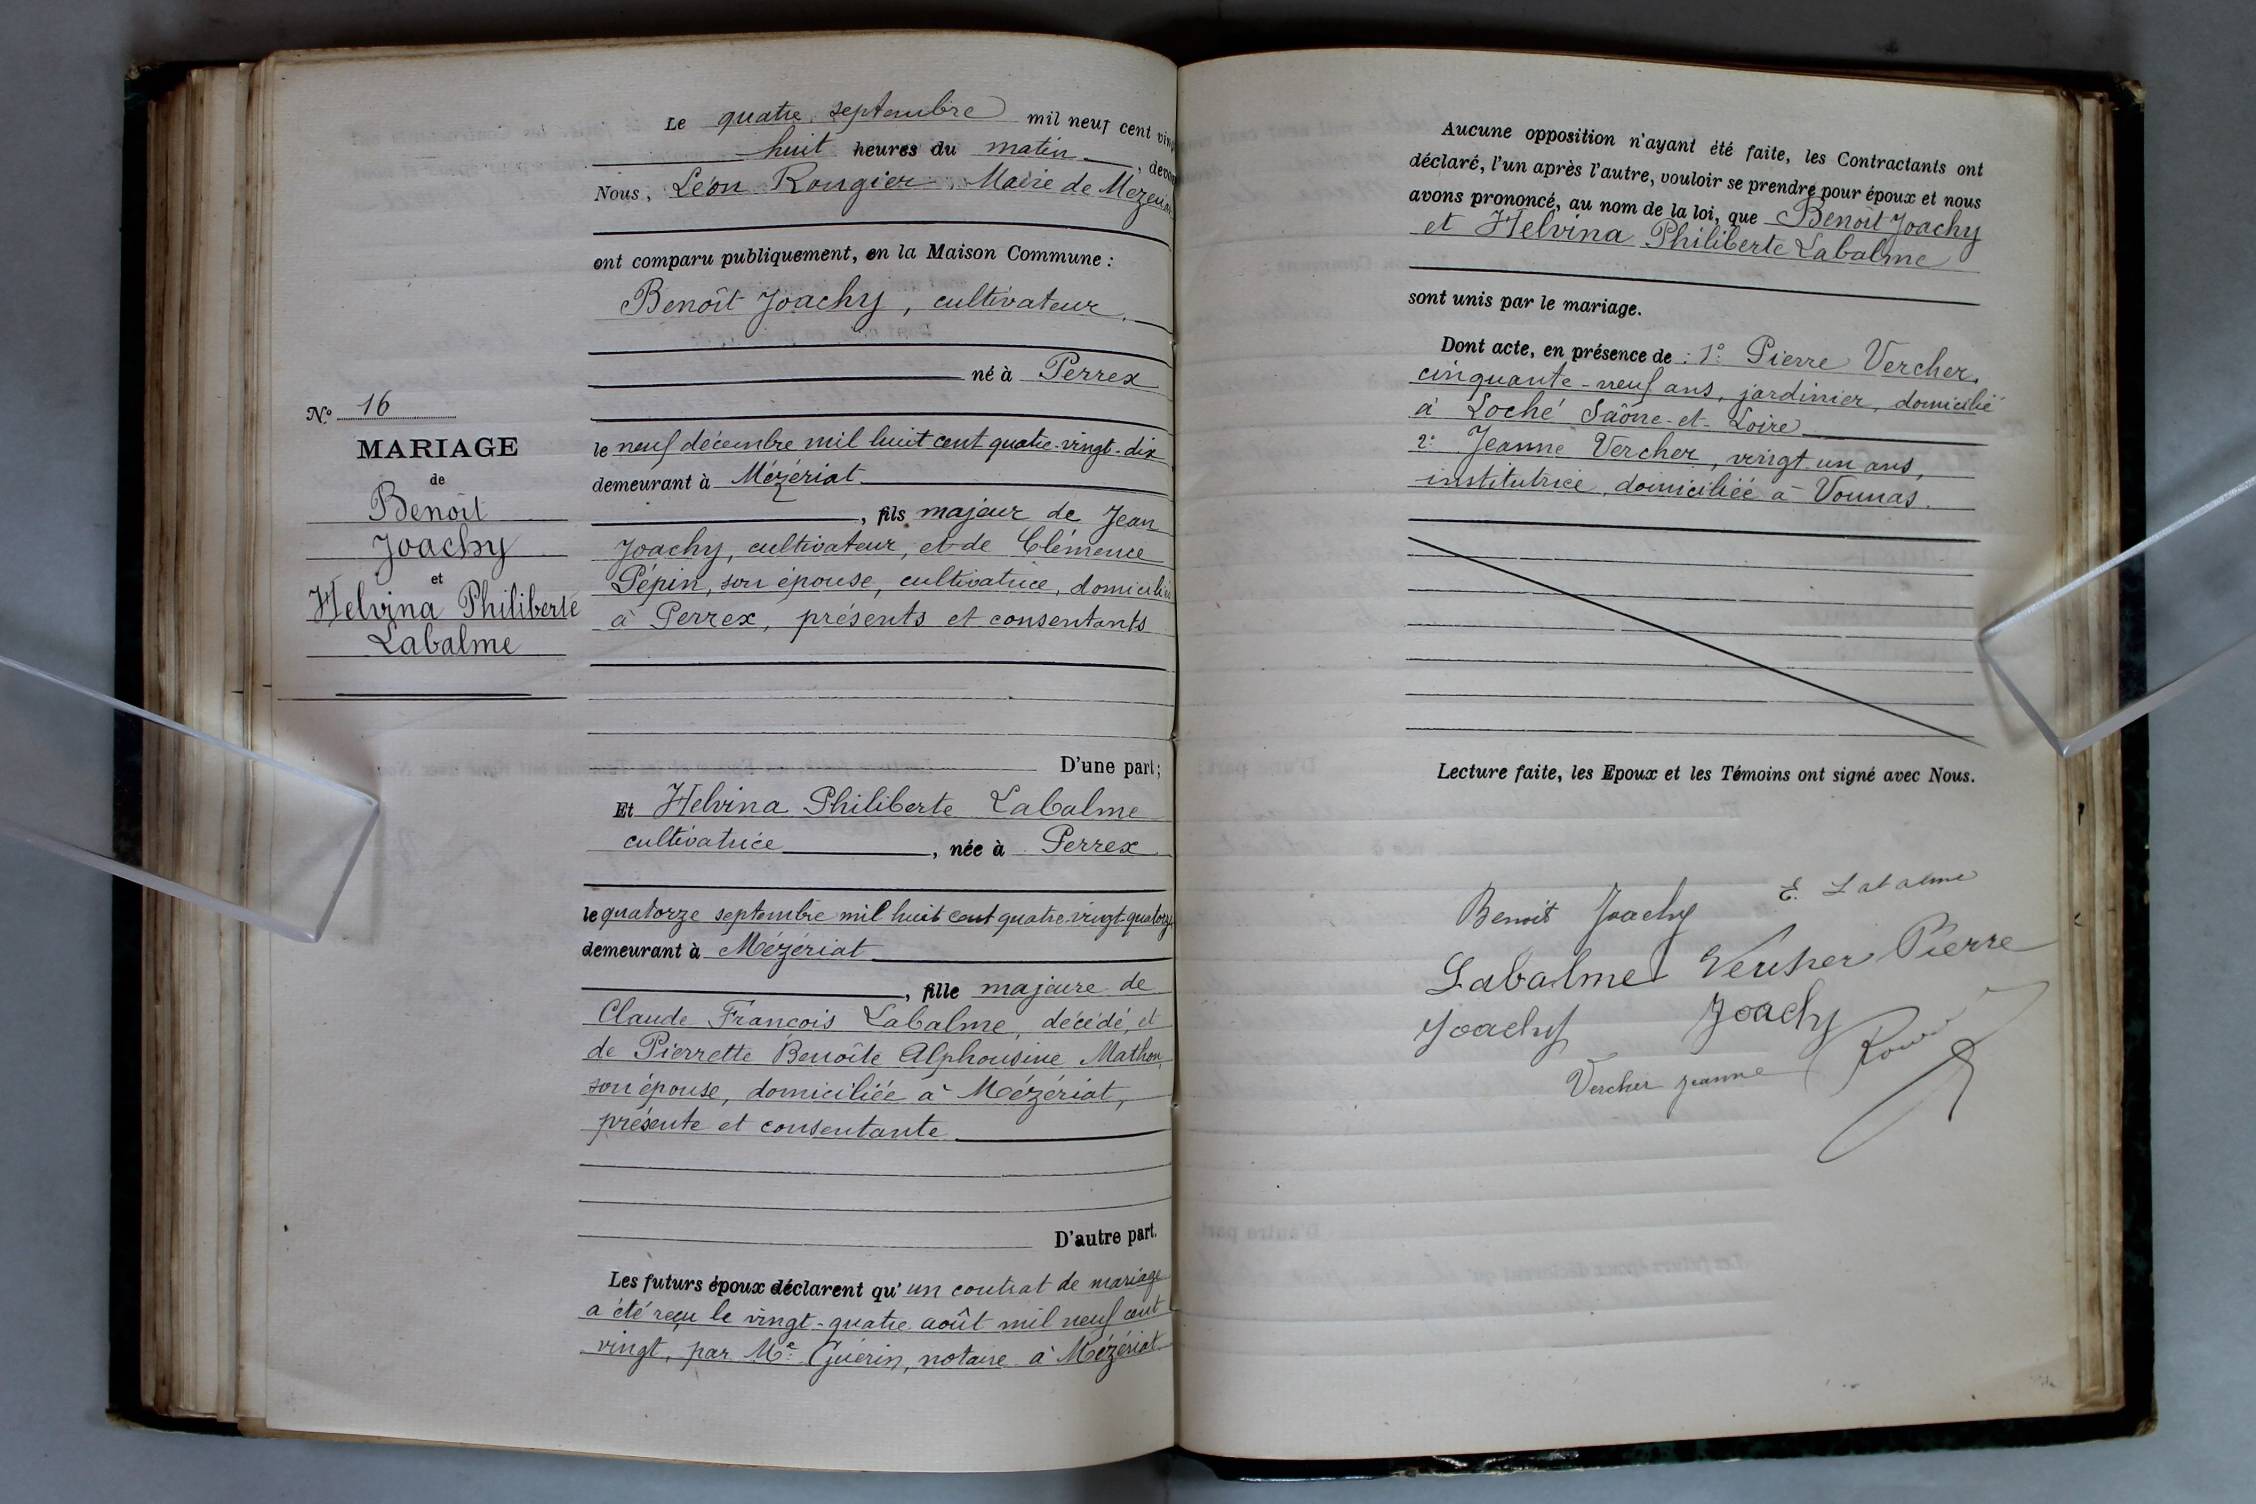 Le quatre septembre mil neuf cent ving
huit heures du matin, devan
Nous, Léon Rougier, Maire de Mézériat
ont comparu publiquement, en la Maison Commune :
Benoît Joachy, cultivateur,
né à Perrex
N° 16
MARIAGE
de
Benoît
Joachy
et
Helvina Philiberte
Labalme
le neuf décembre mil huit cent quatre-vingt-dix
demeurant à Mézériat
, fils majeur de Jean
Joachy, cultivateur, et de Clémence
Pépin, son épouse, cultivatrice, domiciliés
à Perrex, présents et consentants
D'une part;
Et Helvina Philiberte Labalme
cultivatrice, née à Perrex
le quatorze septembre mil huit cent quatre-vingt-quatorze
demeurant à Mézériat
, fille majeure de
Claude François Labalme, décédé, et
de Pierrette Benoîte Alphonsine Mathon,
son épouse, domiciliée à Mézériat,
présente et consentante
D'autre part.
Les futurs époux déclarent qu'un contrat de mariage
a été reçu le vingt-quatre août mil neuf cent
vingt, par Me Guérin, notaire à Mézériat
Aucune opposition n'ayant été faite, les Contractants ont
déclaré, l'un après l'autre, vouloir se prendre pour époux et nous
avons prononcé, au nom de la loi, que Benoît Joachy
et Helvina Philiberte Labalme
sont unis par le mariage.
Dont acte, en présence de : 1° Pierre Vercher,
cinquante-neuf ans, jardinier, domicilié
à Loché Saône-et-Loire
2° Jeanne Vercher, vingt un ans,
institutrice, domiciliée à Vonnas.
Lecture faite, les Epoux et les Témoins ont signé avec Nous.
Benoit Joachy E. Labalme
Labalme Vercher Pierre
Joachy Joachy
Vercher Jeanne